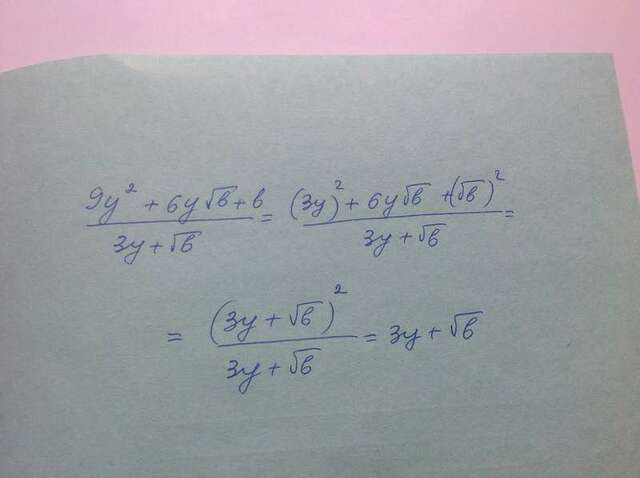 (9y² + 6y√b + b)/(3y + √b) = ((3y)² + 6y√b + (√b)²)/(3y + √b) =
= (3y + √b)²/(3y + √b) = 3y + √b